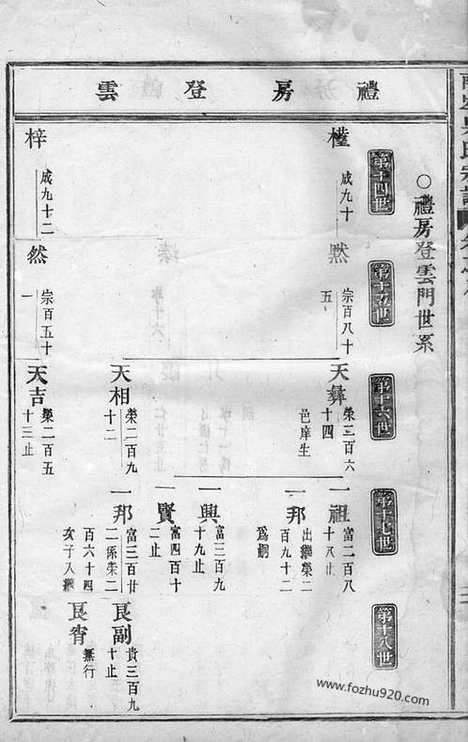 禮房登雲
○禮房登雲門世系
第十四世
第十五世
第十六世
第十七世
第十八世
成九十
默
宗百八十
五
天彝
榮三百六
十四
邑庠生
一祖
富二百八
十八止
一邦
出繼榮二
百九十二
為嗣
一興
富三百九
十九止
一賢
富四百十
二止
天相
榮二百九
十二
一邦
富三百廿
二係榮二
百六十四
次子入繼
良副
貴三百九
十止
良肯
無行
梓
成九十二
然
宗百五十
一
天吉
榮二百五
十三止
www.fozhu920.com